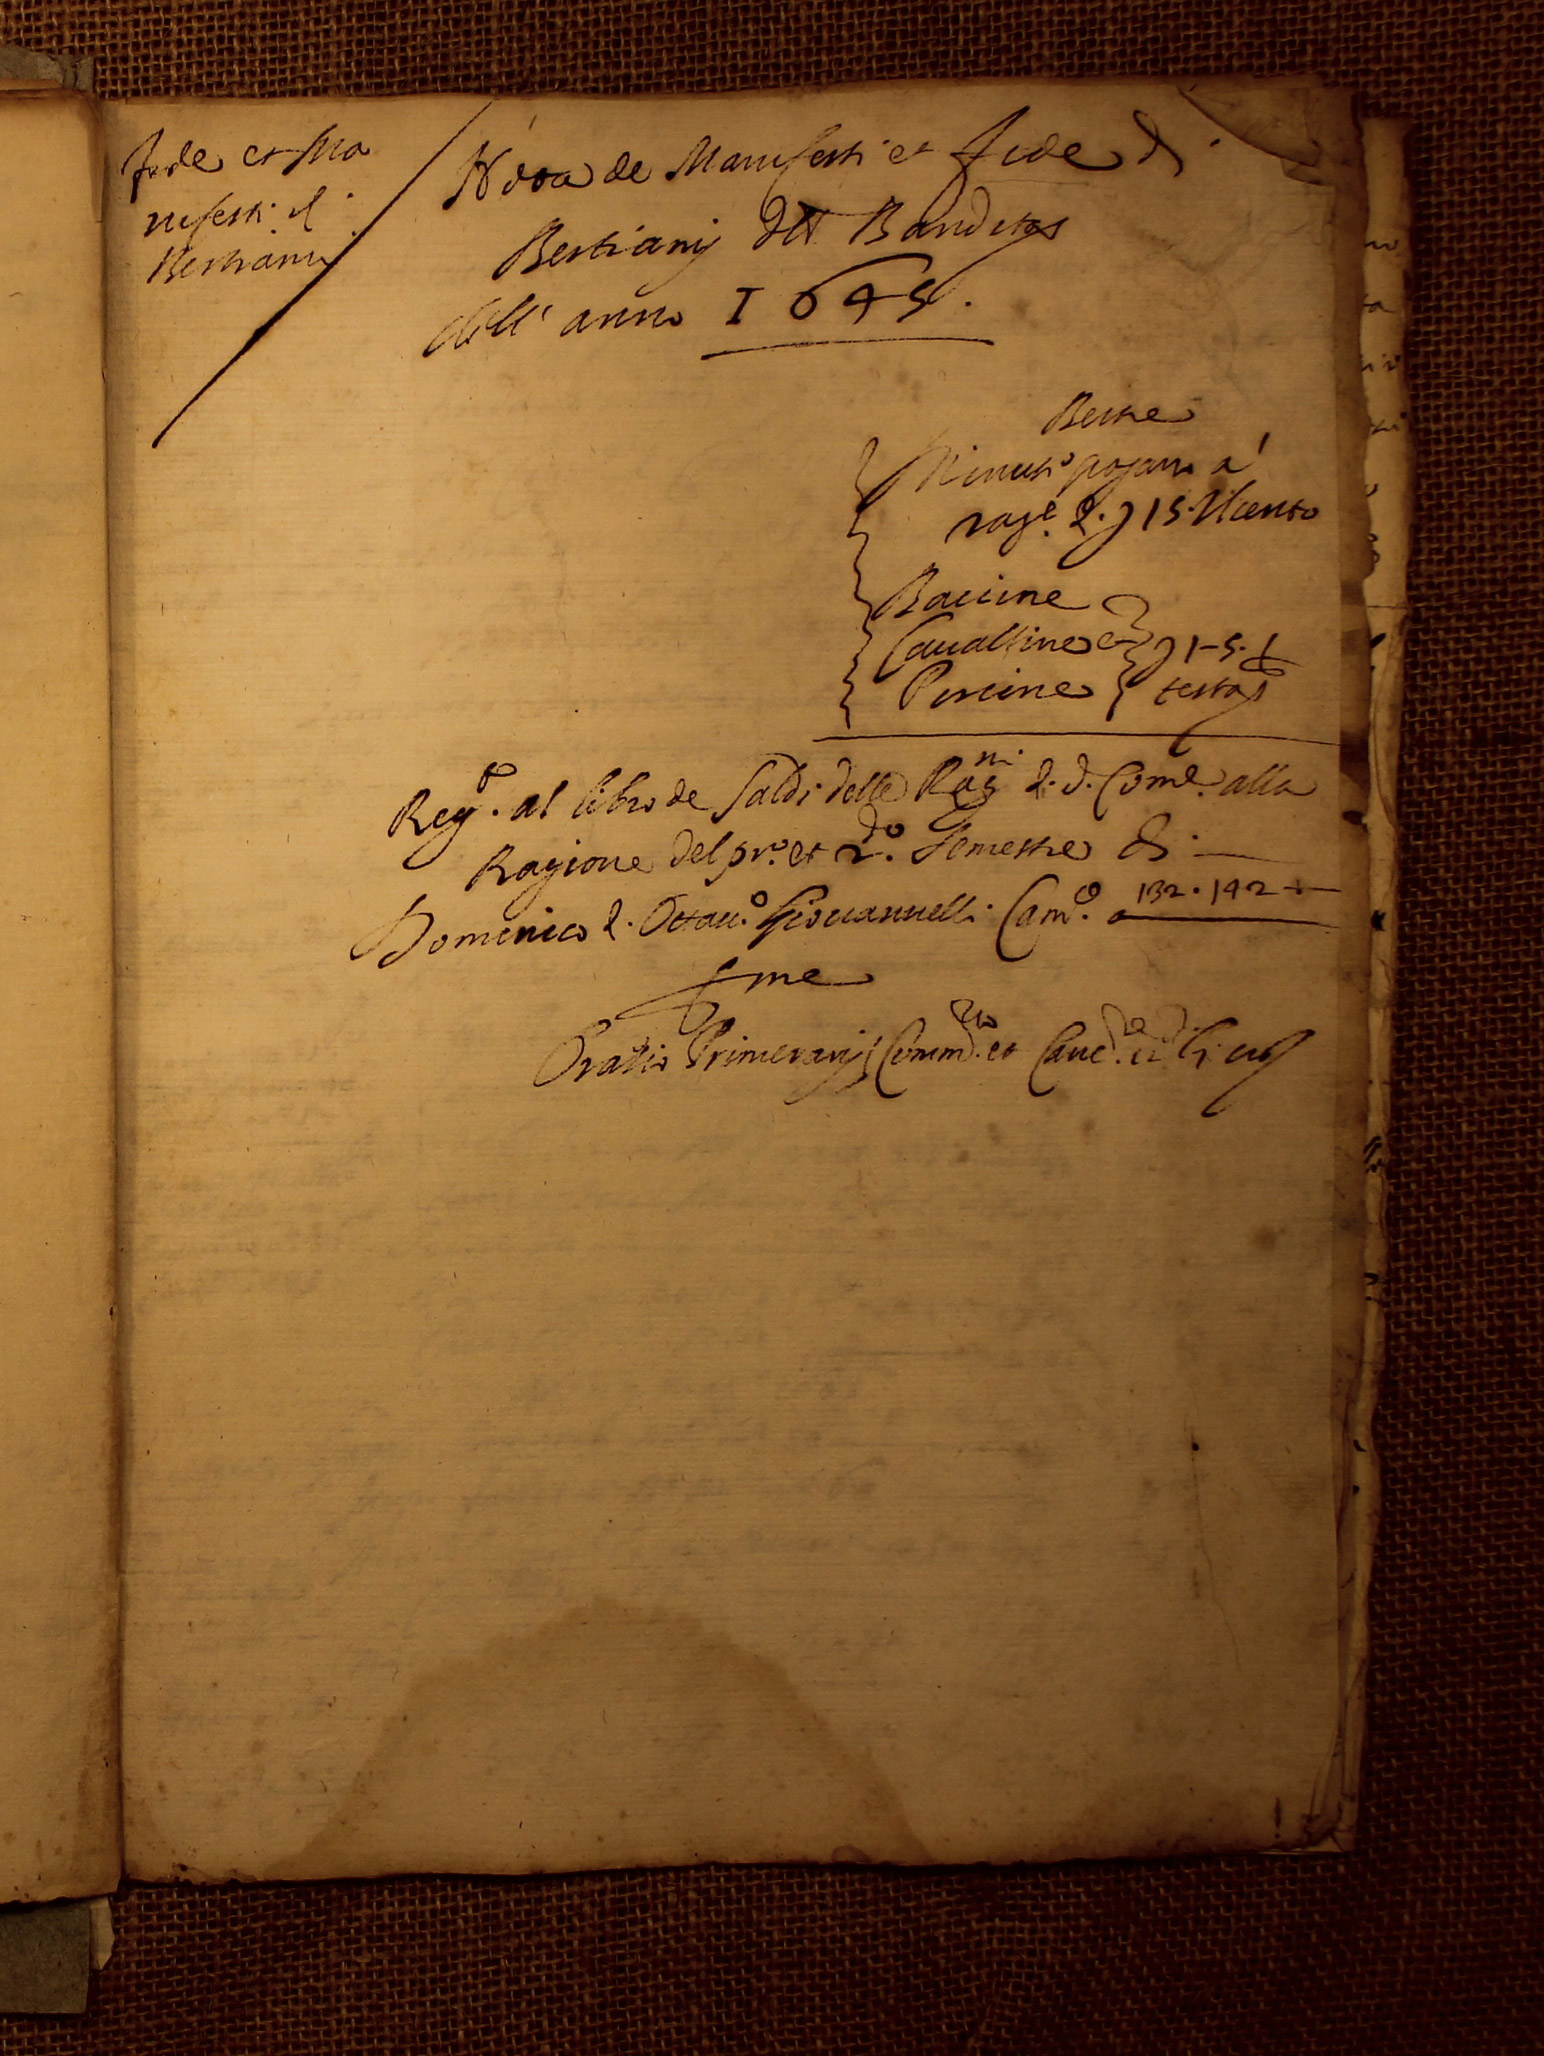 Fede et Ma
nifesti d
Bestiami
Nota de Manifesti et Fede di
Bestiami del Bandita
dell' anno 1645.
Bestie
Minuti pagano a
rag.e d. 15. Il cento
Baccine
Cavalline et 1-5.
Porcine testa
Reg.to al libro de Saldi delle Rag.ni d. d. Com.e alla
Ragione del pr.o et 2.do Semestre di
Domenico d. Ottav.o Giovannelli Cam.o a 132. 142
me
Oratio Primerani Comm.rio et Canc.